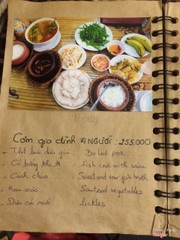 Cơm gia đình 4 NGƯỜI : 255.000
- Thịt luộc
- Boiled pork
- Cá
- Fish cook with sauce
- Canh chua
- Sweet and sour fish broth
- Rau xào
- Sauteed vegetables
- Dưa cà muối
- Pickles